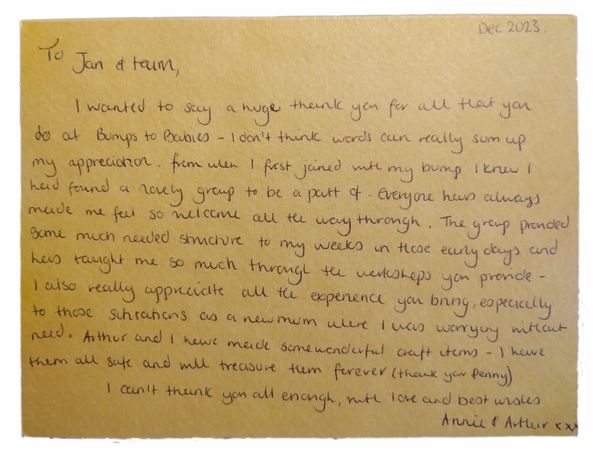 Dec 2023.
To Jan & team,
I wanted to say a huge thank you for all that you
do at Bumps to Babies - I don't think words can really sum up
my appreciation. From when I first joined with my bump I knew I
had found a lovely group to be a part of. Everyone has always
made me feel so welcome all the way through. The group provided
some much needed structure to my weeks in those early days and
has taught me so much through the workshops you provide -
I also really appreciate all the experience you bring, especially
to those situations as a new mum where I was worrying without
need. Arthur and I have made some wonderful craft items - I have
them all safe and will treasure them forever (thank you Penny)
I can't thank you all enough, with love and best wishes
Annie & Arthur xxx